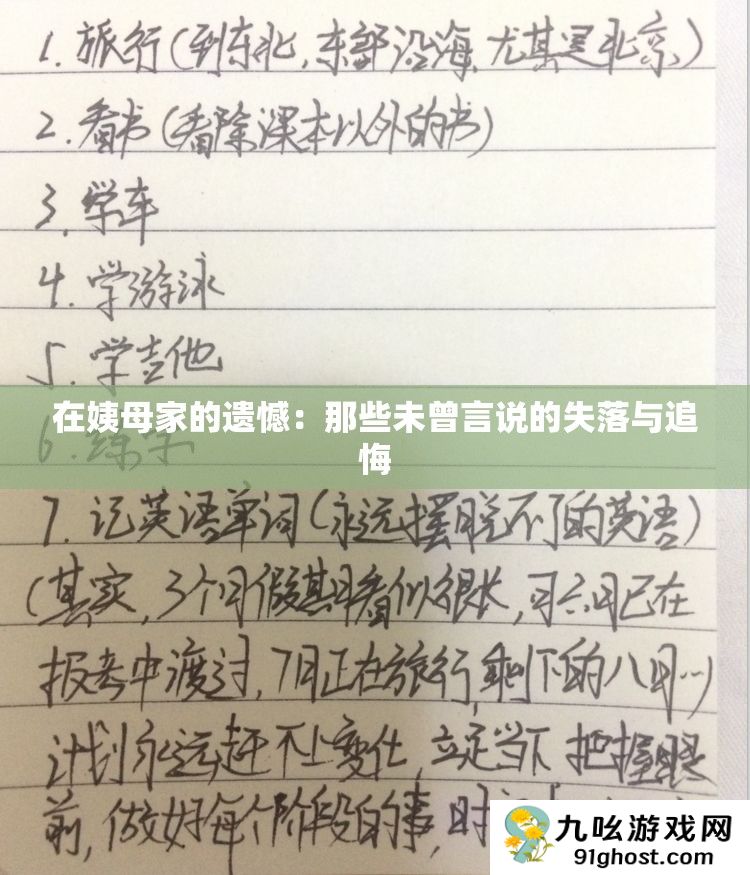 1. 旅行(到东北,东部沿海,尤其是北京)
2. 看书(看除课本以外的书)
3. 学车
4. 学游泳
5. 学吉他
在姨母家的遗憾：那些未曾言说的失落与追
悔
6. 练字
7. 记英语单词(永远摆脱不了的英语)
(其实,3个月假期看似很长,可六月已在
报考中渡过,7月正在旅行,剩下的八月…)
计划永远赶不上变化,立足当下,把握眼
前,做好每个阶段的事,时
九吆游戏网
91ghost.com